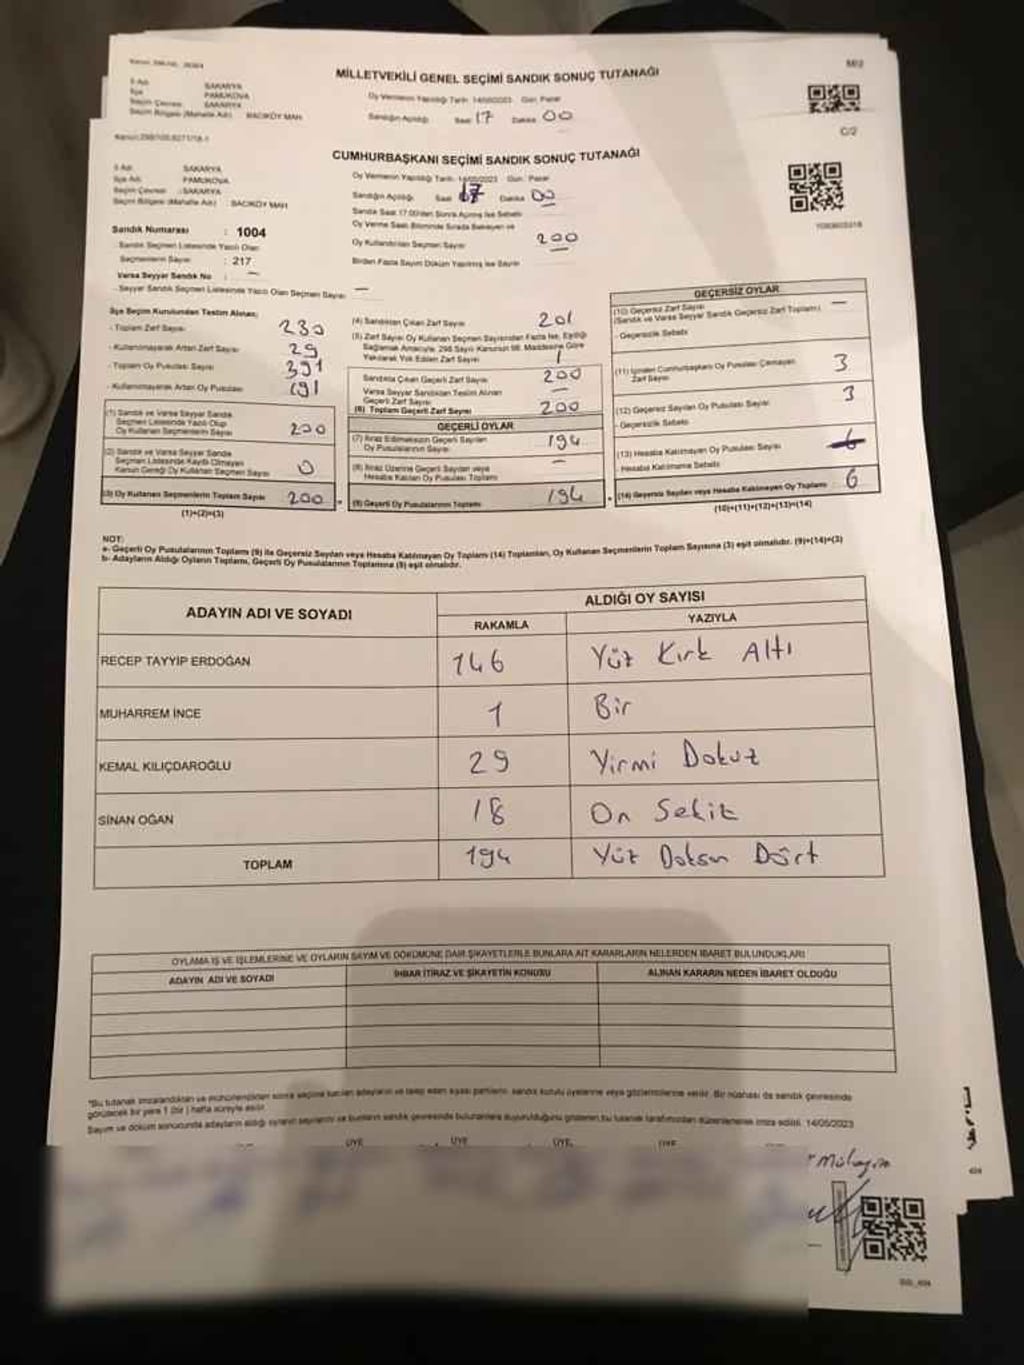 MİLLETVEKİLİ GENEL SEÇİMİ SANDIK SONUÇ TUTANAĞI
İl Adı SAKARYA
İlçe PAMUKOVA
Seçim Çevresi SAKARYA
Seçim Bölgesi (Mahalle Adı) BACIKÖY MAH
Oy Vermenin Yapıldığı Tarih 14/05/2023 Gün: Pazar
Sandığın Açıldığı Saat 17 Dakika 00
C/2
CUMHURBAŞKANI SEÇİMİ SANDIK SONUÇ TUTANAĞI
İl Adı : SAKARYA
İlçe Adı : PAMUKOVA
Seçim Çevresi : SAKARYA
Seçim Bölgesi (Mahalle Adı) : BACIKÖY MAH
Sandık Numarası : 1004
Sandık Seçmen Listesinde Yazılı Olan
Seçmenlerin Sayısı : 217
Varsa Seyyar Sandık No : —
Seyyar Sandık Seçmen Listesinde Yazılı Olan Seçmen Sayısı: —
Oy Vermenin Yapıldığı Tarih: 14/05/2023 Gün: Pazar
Sandığın Açıldığı Saat 17 Dakika 00
Sandık Saat 17.00'den Sonra Açılmış İse Sebebi
Oy Verme Saati Bitiminde Sırada Bekleyen ve
Oy Kullandırılan Seçmen Sayısı 200
Birden Fazla Sayım Döküm Yapılmış İse Sayısı
İlçe Seçim Kurulundan Teslim Alınan;
- Toplam Zarf Sayısı 230
- Kullanılmayarak Artan Zarf Sayısı 29
- Toplam Oy Pusulası Sayısı 391
- Kullanılmayarak Artan Oy Pusulası 191
(1) Sandık ve Varsa Seyyar Sandık
Seçmen Listesinde Yazılı Olup
Oy Kullanan Seçmenlerin Sayısı 200
(2) Sandık ve Varsa Seyyar Sandık
Seçmen Listesinde Kayıtlı Olmayan
Kanun Gereği Oy Kullanan Seçmen Sayısı 0
(3) Oy Kullanan Seçmenlerin Toplam Sayısı 200
(1)+(2)=(3)
(4) Sandıktan Çıkan Zarf Sayısı 201
(5) Zarf Sayısı Oy Kullanan Seçmen Sayısından Fazla İse, Eşitliği
Sağlamak Amacıyla, 298 Sayılı Kanunun 98. Maddesine Göre
Yakılarak Yok Edilen Zarf Sayısı 1
Sandıkta Çıkan Geçerli Zarf Sayısı 200
Varsa Seyyar Sandıktan Teslim Alınan
Geçerli Zarf Sayısı —
(6) Toplam Geçerli Zarf Sayısı 200
GEÇERLİ OYLAR
(7) İtiraz Edilmeksizin Geçerli Sayılan
Oy Pusulalarının Sayısı 194
(8) İtiraz Üzerine Geçerli Sayılan veya
Hesaba Katılan Oy Pusulası Toplamı —
(9) Geçerli Oy Pusulalarının Toplamı 194
GEÇERSİZ OYLAR
(10) Geçersiz Zarf Sayısı —
(Sandık ve Varsa Seyyar Sandık Geçersiz Zarf Toplamı)
- Geçersizlik Sebebi
(11) İçinden Cumhurbaşkanı Oy Pusulası Çıkmayan
Zarf Sayısı 3
(12) Geçersiz Sayılan Oy Pusulası Sayısı 3
- Geçersizlik Sebebi
(13) Hesaba Katılmayan Oy Pusulası Sayısı 6
- Hesaba Katılmama Sebebi
(14) Geçersiz Sayılan veya Hesaba Katılmayan Oy Toplamı 6
(10)+(11)+(12)+(13)=(14)
NOT:
a- Geçerli Oy Pusulalarının Toplamı (9) ile Geçersiz Sayılan veya Hesaba Katılmayan Oy Toplamı (14) Toplamları, Oy Kullanan Seçmenlerin Toplam Sayısına (3) eşit olmalıdır. (9)+(14)=(3)
b- Adayların Aldığı Oyların Toplamı, Geçerli Oy Pusulalarının Toplamına (9) eşit olmalıdır.
ADAYIN ADI VE SOYADI
ALDIĞI OY SAYISI
RAKAMLA YAZIYLA
RECEP TAYYİP ERDOĞAN 146 Yüz Kırk Altı
MUHARREM İNCE 1 Bir
KEMAL KILIÇDAROĞLU 29 Yirmi Dokuz
SİNAN OĞAN 18 On Sekiz
TOPLAM 194 Yüz Doksan Dört
OYLAMA İŞ VE İŞLEMLERİNE VE OYLARIN SAYIM VE DÖKÜMÜNE DAİR ŞİKAYETLERLE BUNLARA AİT KARARLARIN NELERDEN İBARET BULUNDUKLARI
ADAYIN ADI VE SOYADI İHBAR İTİRAZ VE ŞİKAYETİN KONUSU ALINAN KARARIN NEDEN İBARET OLDUĞU
*Bu tutanak imzalandıktan ve mühürlendikten sonra seçime katılan adayların ve talep eden siyasi partilerin sandık kurulu üyelerine veya gözlemcilerine verilir. Bir nüshası da sandık çevresinde
görülecek bir yere 1 (bir) hafta süreyle asılır.
Sayım ve döküm sonucunda adayların aldığı oyların sayılarını ve bunların sandık çevresinde bulunanlara duyurulduğunu gösteren bu tutanak tarafımızdan düzenlenerek imza edildi. 14/05/2023
ÜYE ÜYE ÜYE ÜYE